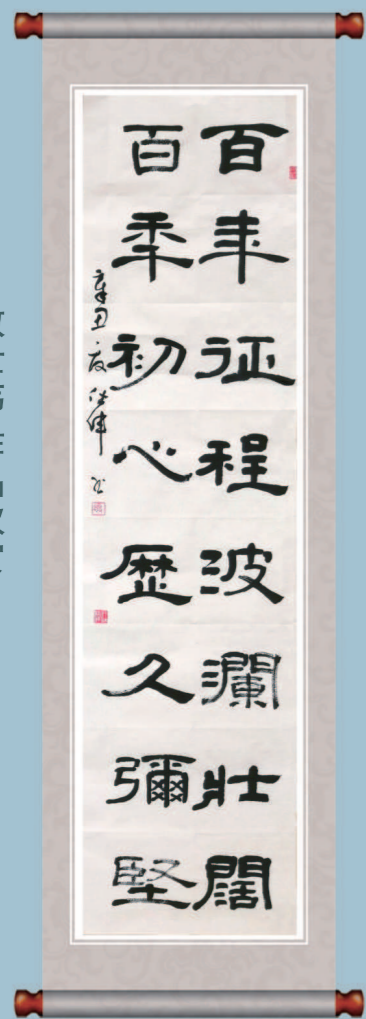 百年征程波瀾壯闊
百年初心歷久彌堅
辛丑